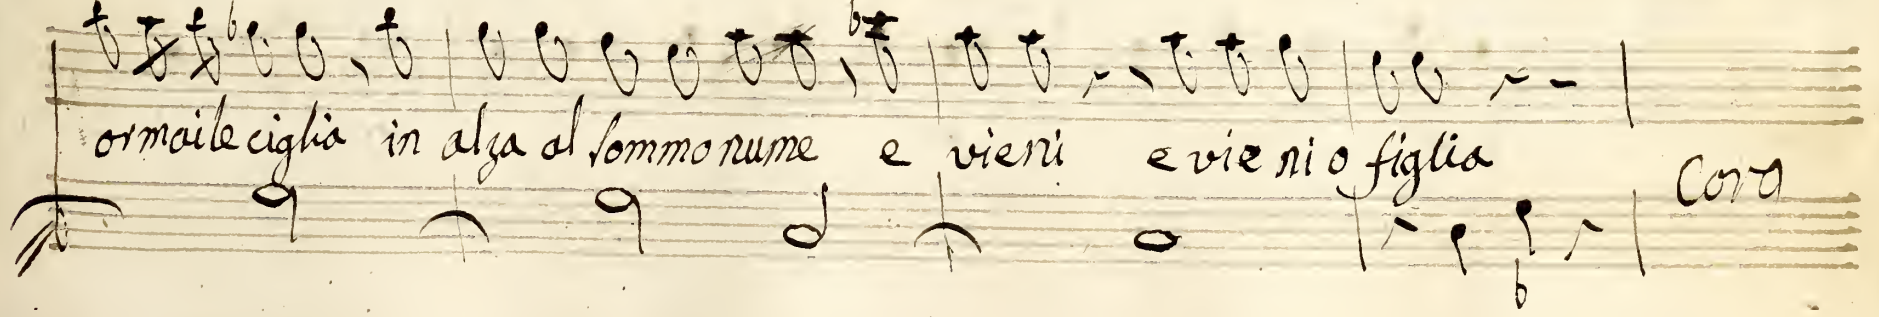 ormai le ciglia in alza al sommo nume e vieni e vieni o figlia
Coro